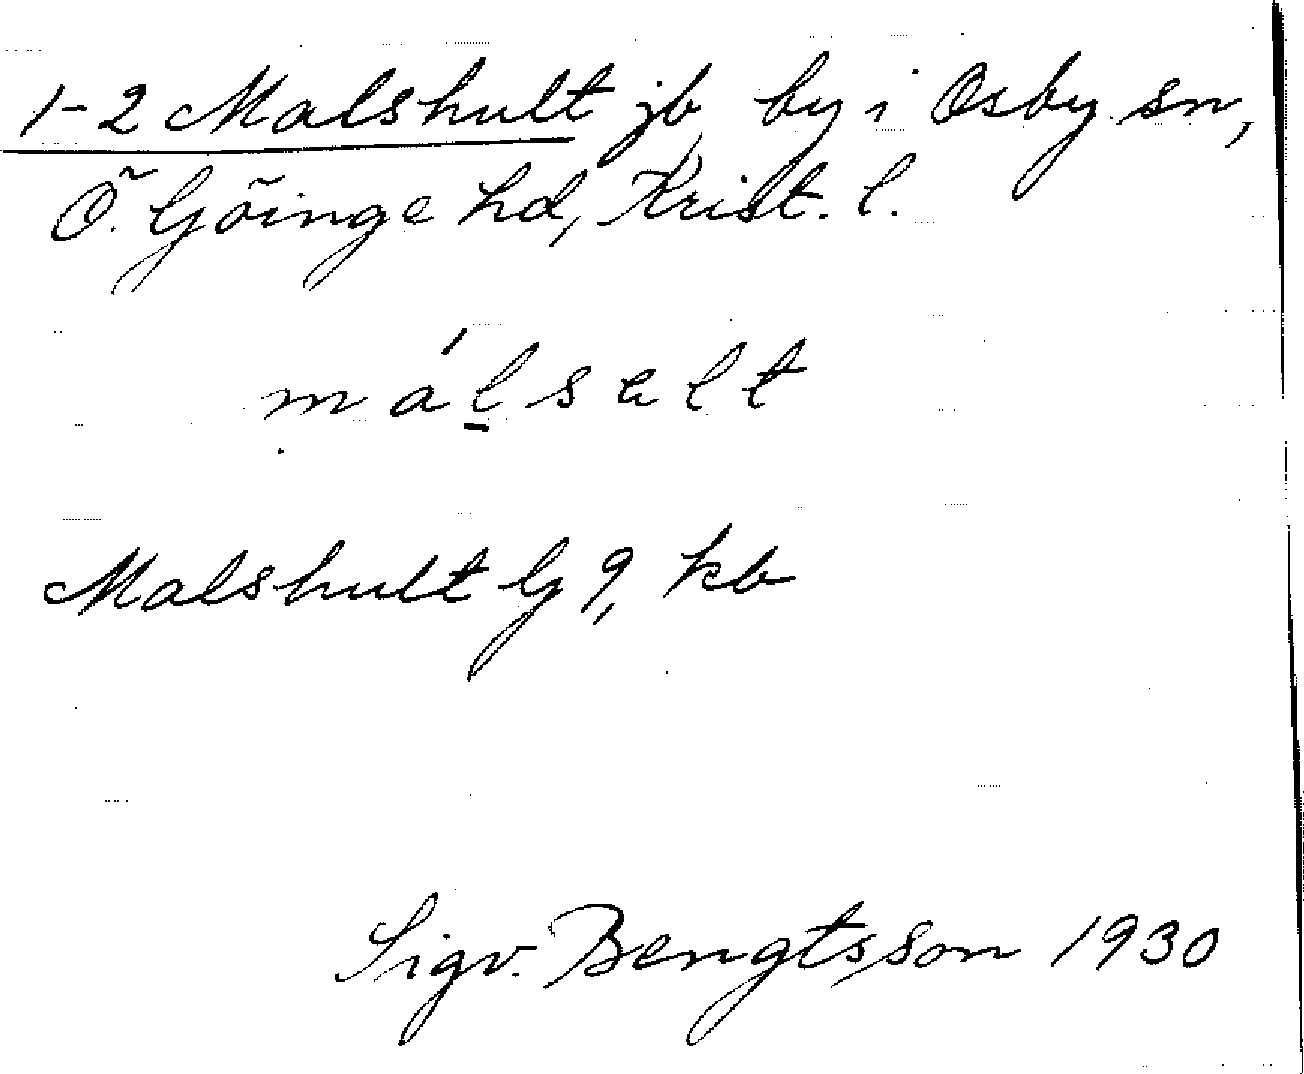 1-2 Malshult jb, by i Osby sn,
Ö. Göinge hd, Krist. l.
málsalt
Malshult G 9, kb
Sigv. Bengtsson 1930